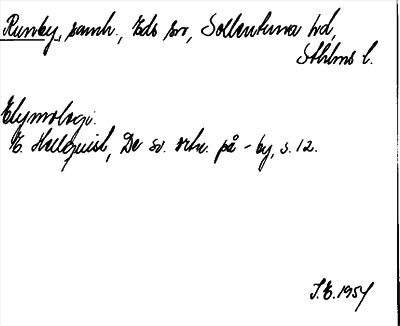 Runby, samh., Eds sn, Sollentuna hd,
Sthlms l.
Etymologi:
E. Hellquist, De sv. ortn. på -by, s. 12.
1957